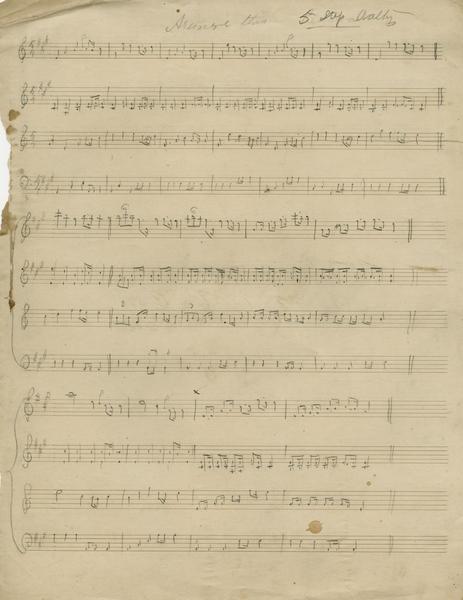 Arrange this 5 Step Waltz